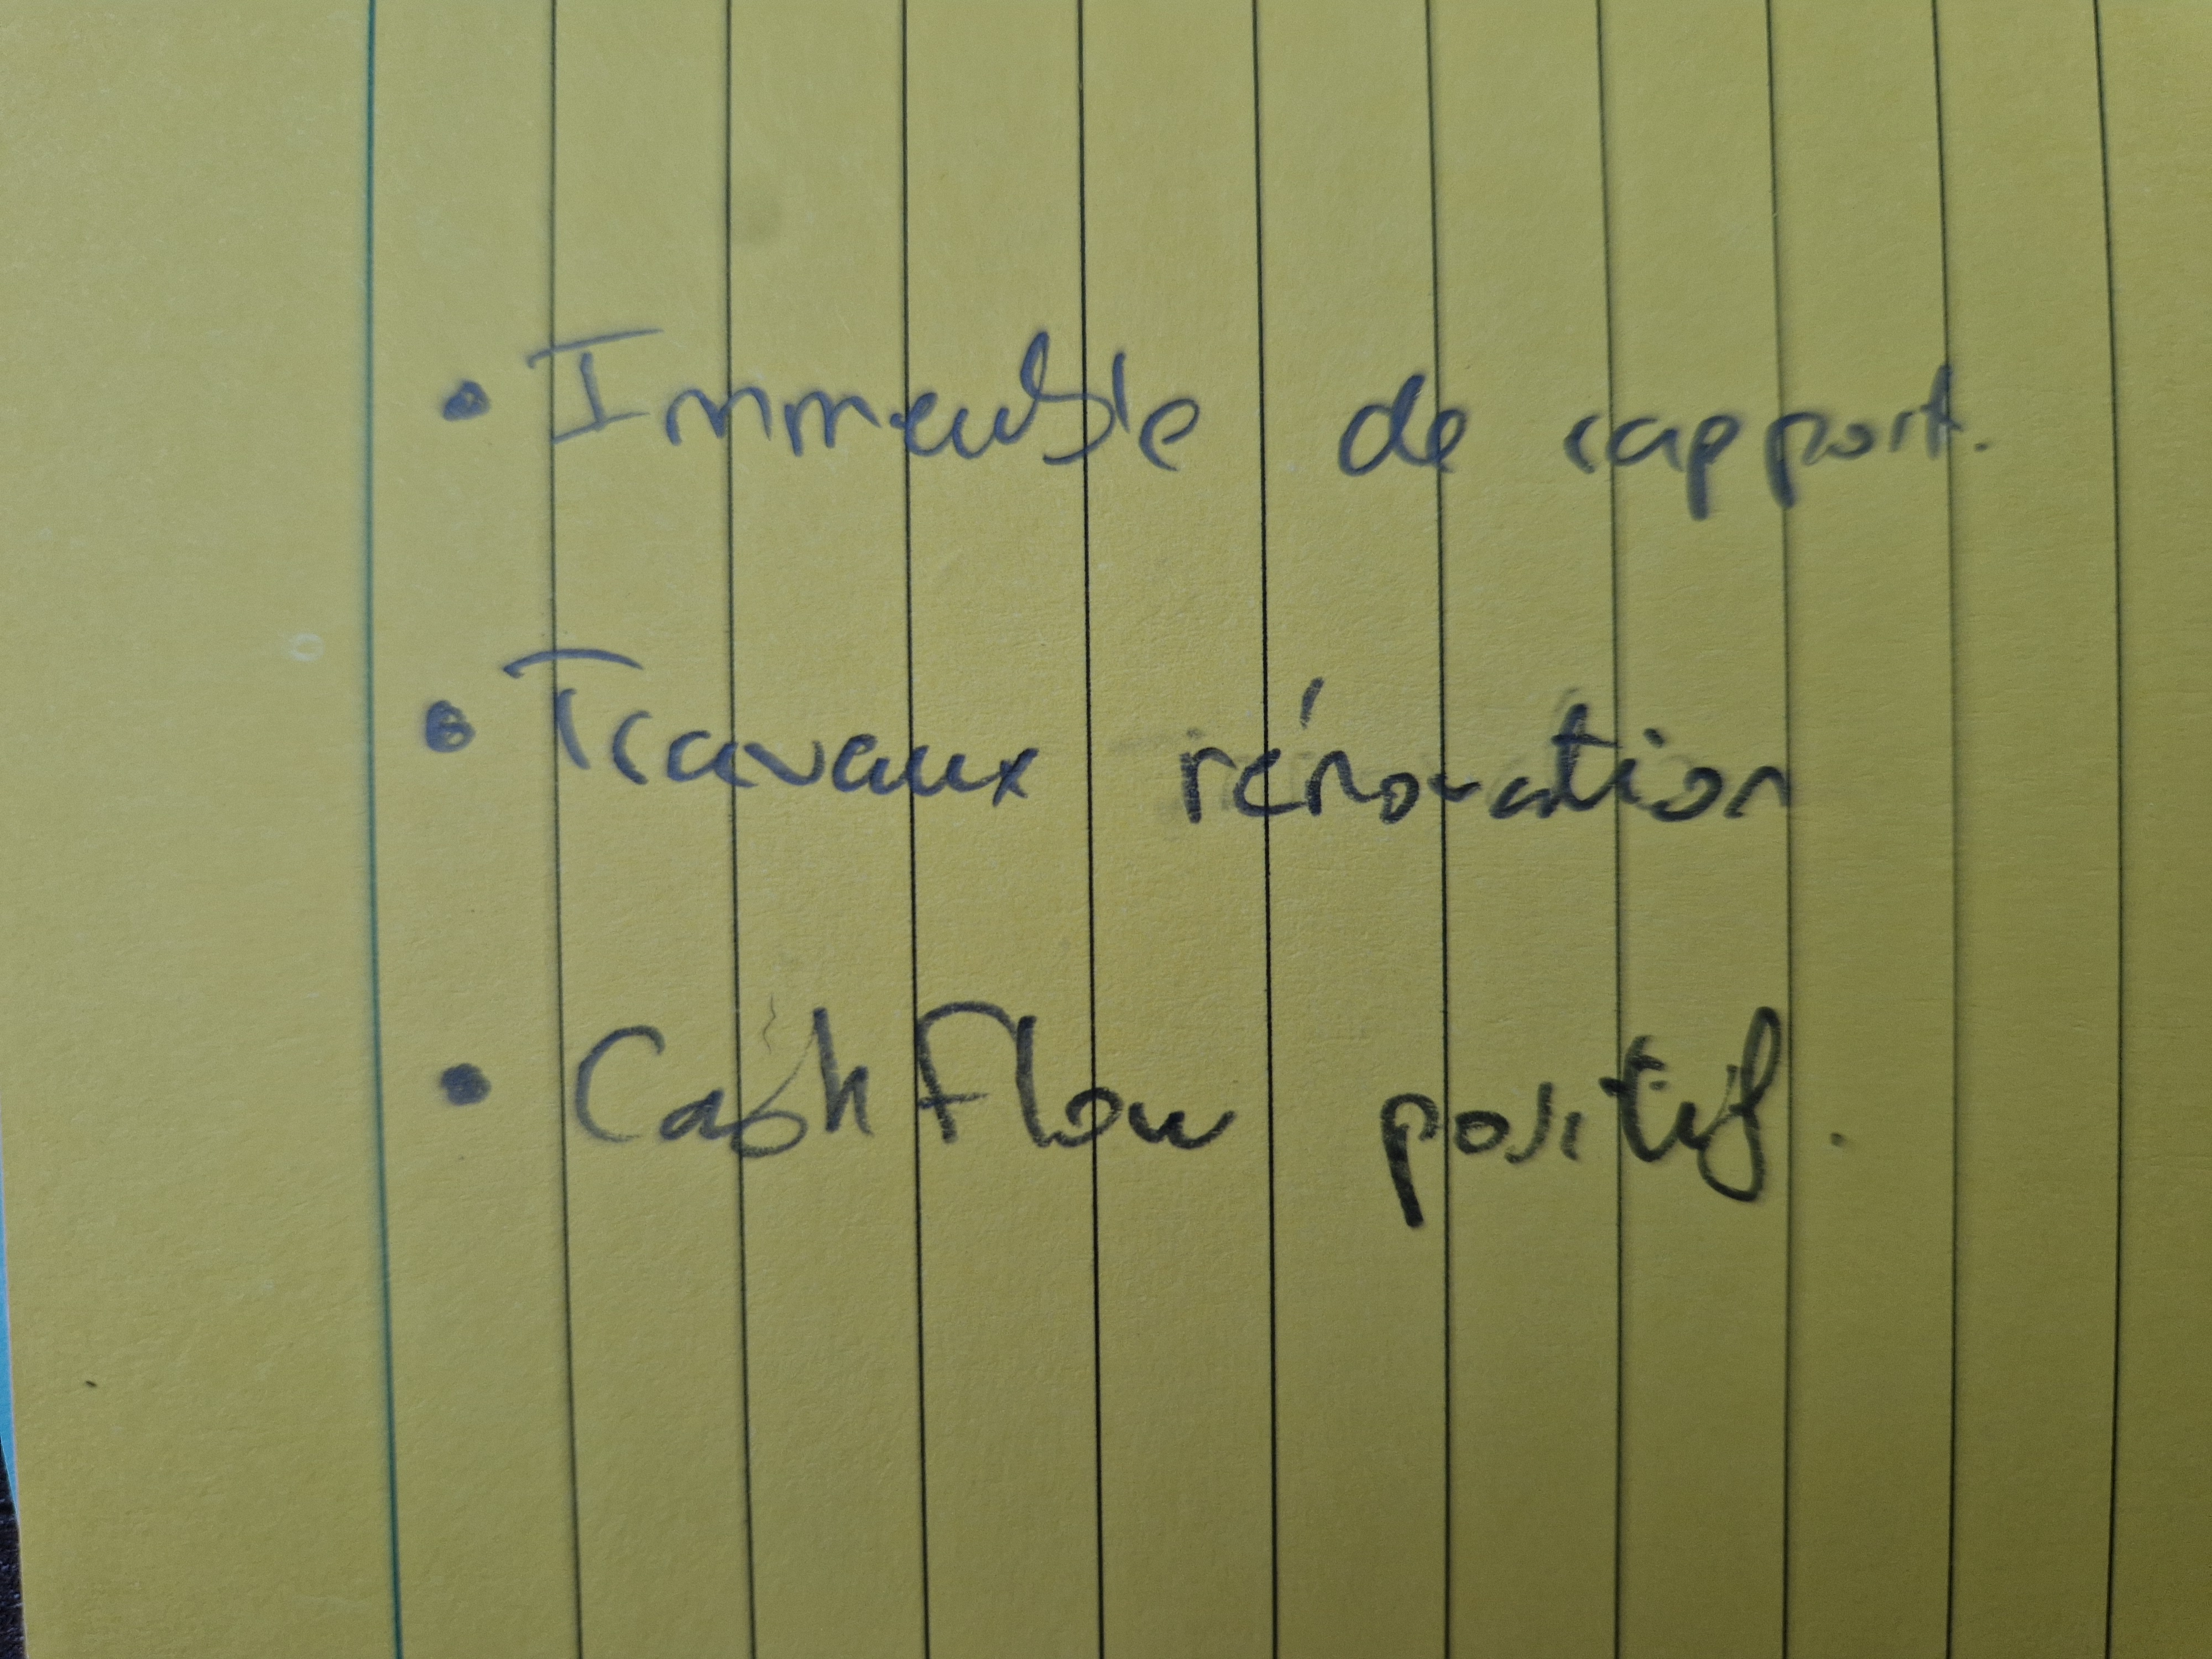 • Immeuble de rapport.
• Travaux rénovation
• Cash Flow positif.